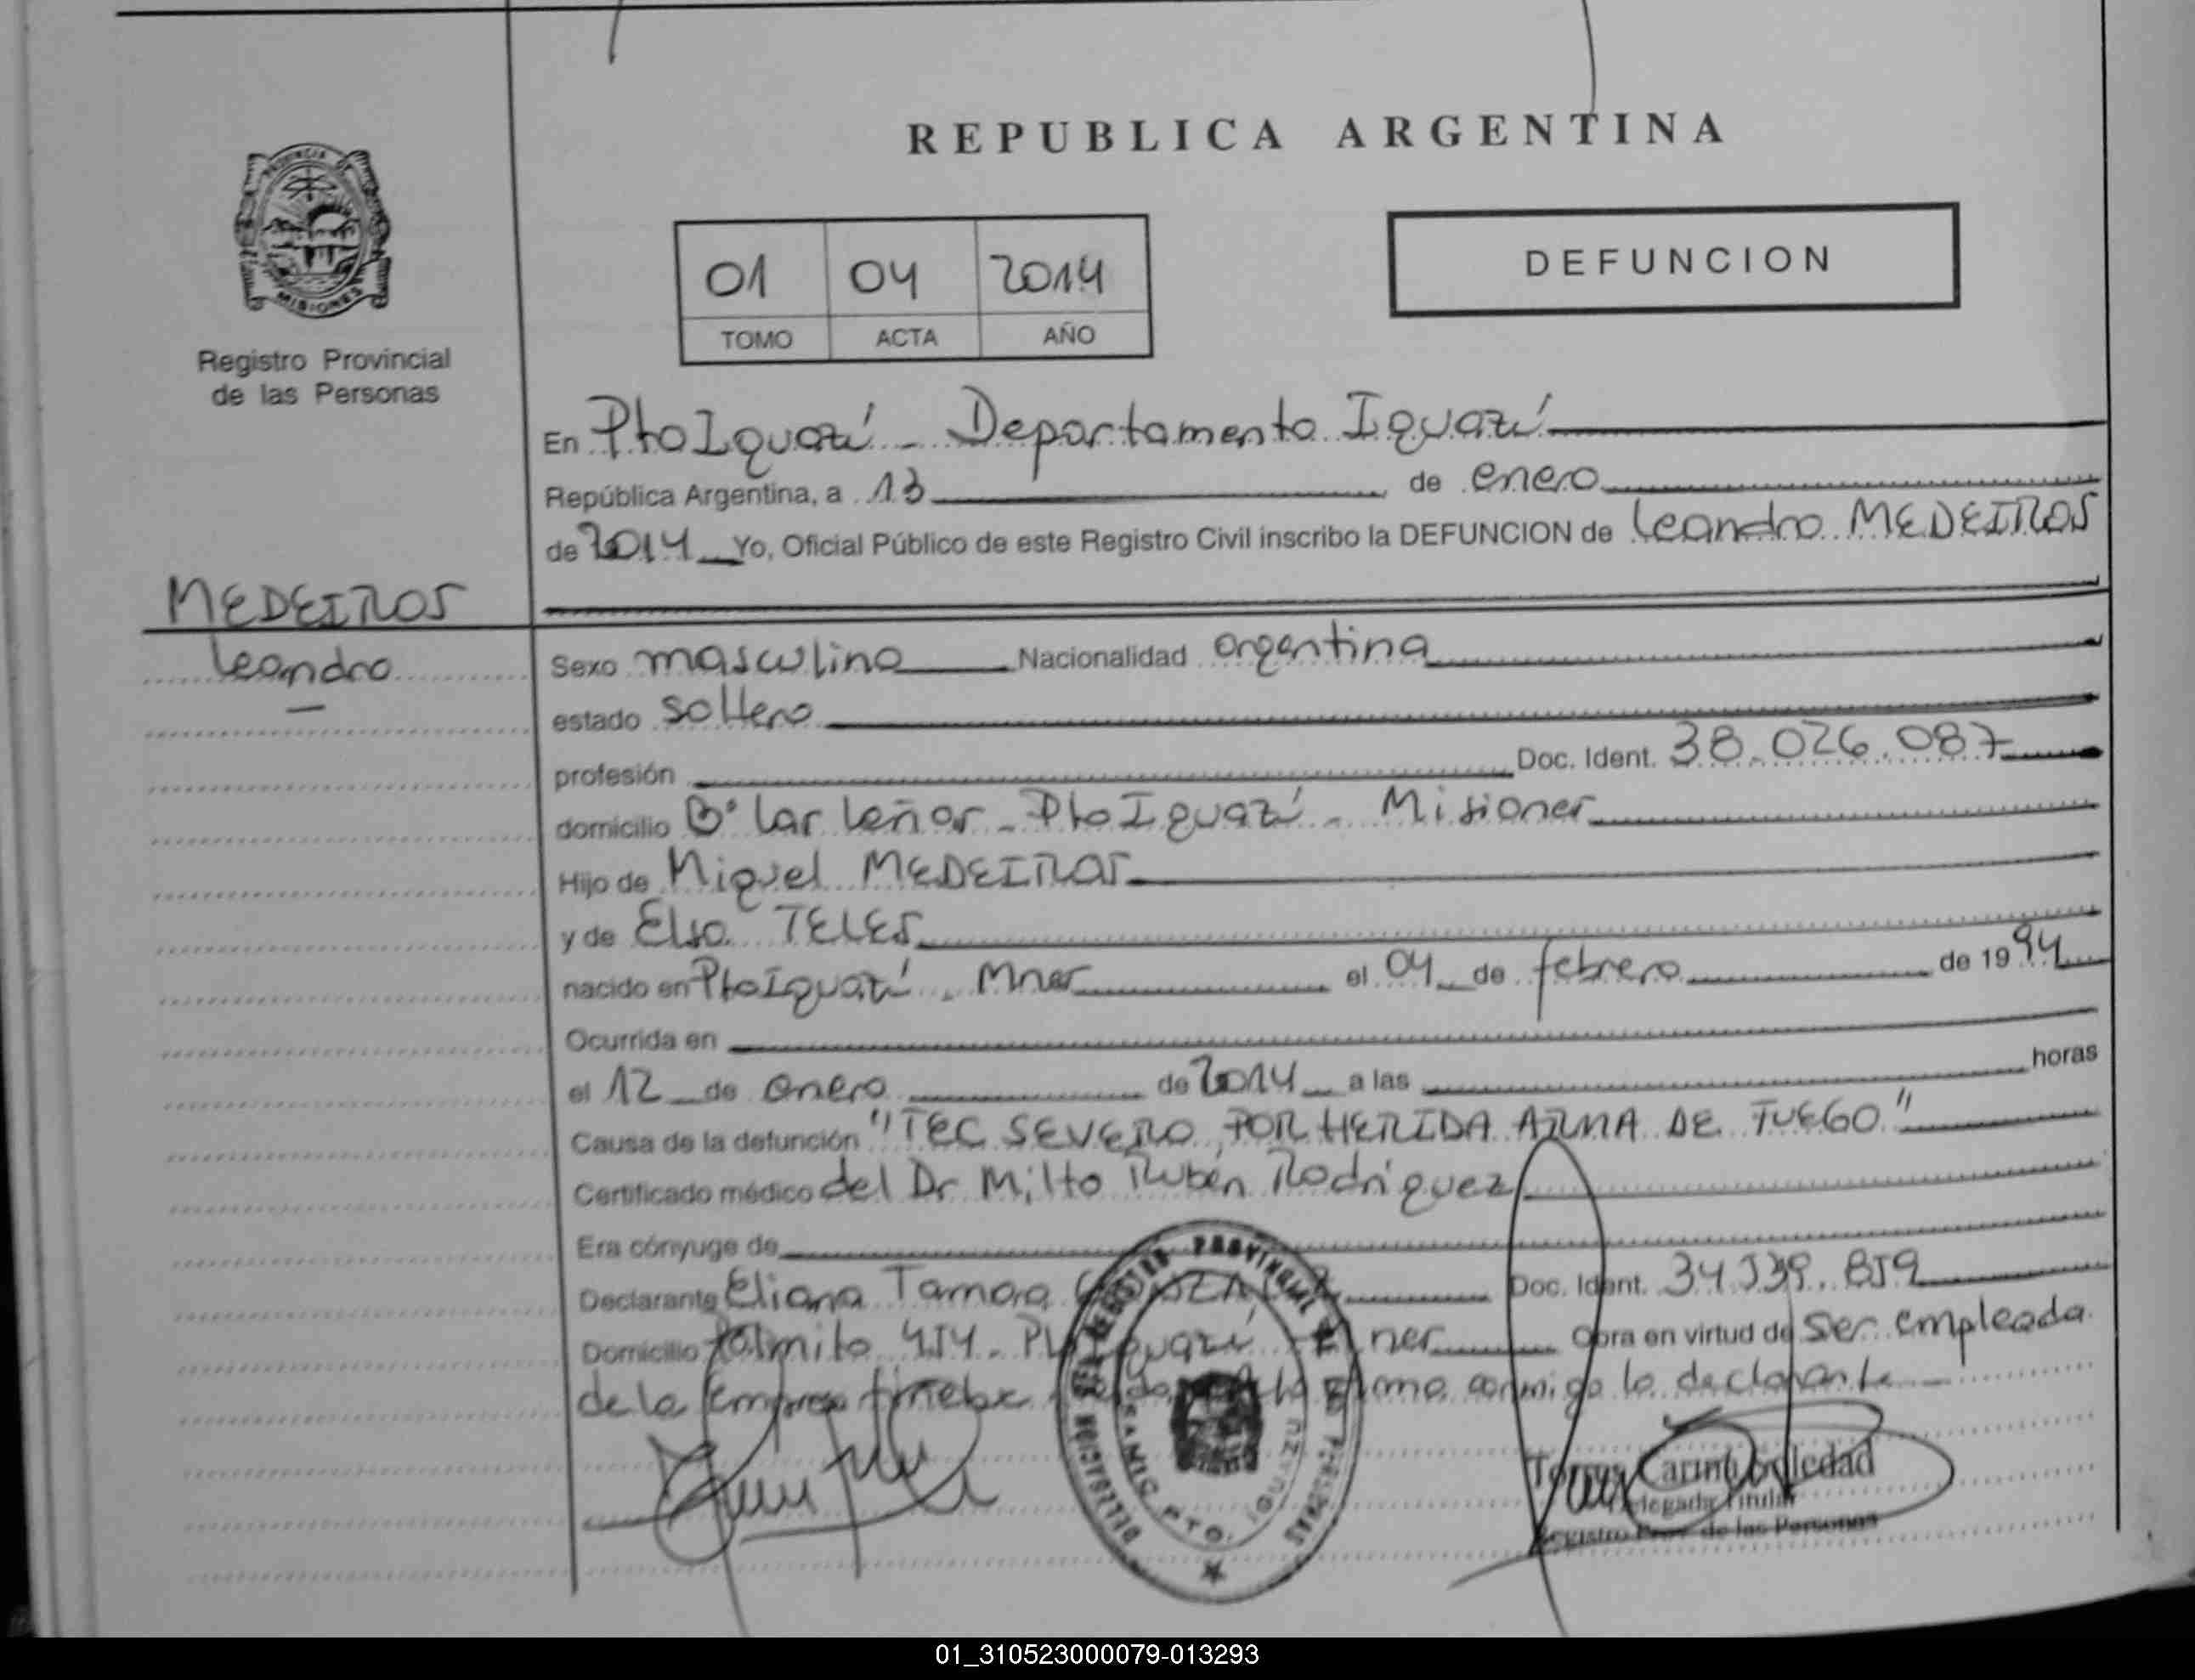 REPUBLICA ARGENTINA
PROVINCIA DE
MISIONES
Registro Provincial
de las Personas
01 04 2014
TOMO ACTA AÑO
DEFUNCION
En Pto Iguazú - Departamento Iguazú
República Argentina, a 13 de enero
de 2014 Yo, Oficial Público de este Registro Civil inscribo la DEFUNCION de Leandro MEDEIROS
MEDEIROS
Leandro
Sexo masculino Nacionalidad argentina
estado soltero
profesión Doc. Ident. 38.026.087
domicilio Bº Las Leñas - Pto Iguazú - Misiones
Hijo de Miguel MEDEIROS
y de Elsa TELES
nacido en Pto Iguazú, Mnes el 04 de febrero de 1994
Ocurrida en
el 12 de enero de 2014 a las horas
Causa de la defunción "TEC SEVERO, POR HERIDA ARMA DE FUEGO"
Certificado médico del Dr Milto Rubén Rodriguez
Era cónyuge de
Declarante Eliana Tamara Doc. Ident. 34.539.859
Domicilio Palmito 454 - Pto Iguazú, Mnes Obra en virtud de ser empleada
de la Empresa fúnebre firma conmigo la declarante
DELEGACION DEL REGISTRO PROVINCIAL DE LAS PERSONAS
PTO. IGUAZU
Torres Carina Soledad
Delegada Titular
Registro Prov. de las Personas
01_310523000079-013293